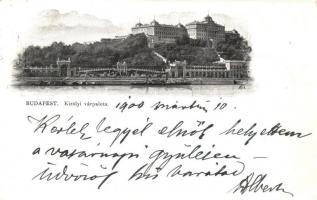 BUDAPEST. Királyi várpalota.
1900 március 10.
Kérlek légyél elnök helyettem
a vasárnapi gyűlésen –
üdvözöl hű barátod
Albert